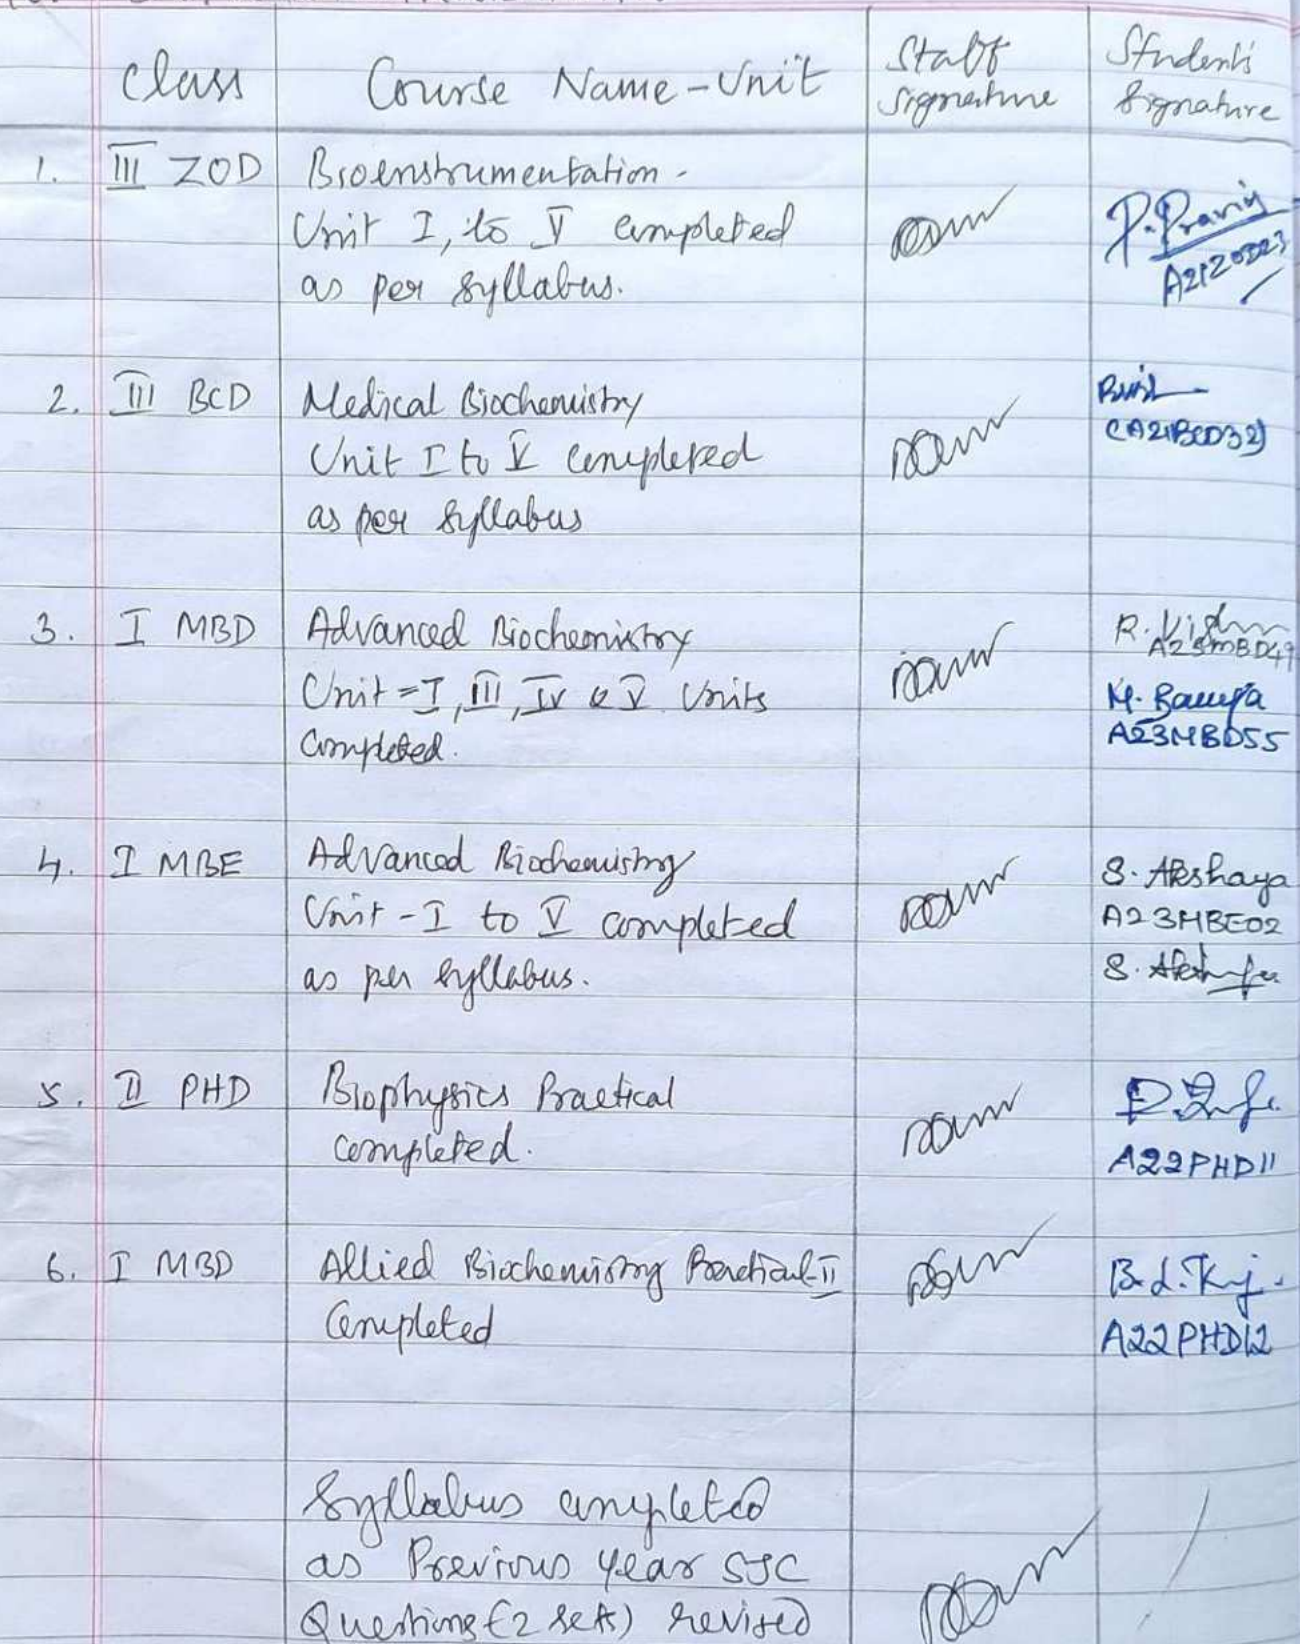 Class Course Name - Unit Staff Signature Students Signature
1. III ZOD Bioenstrumentation -
Unit I, to V completed
as per syllabus.
P. Pravin
A21ZOD23
2. III BCD Medical Biochemistry
Unit I to V completed
as per syllabus
(A21BCD32)
3. I MBD Advanced Biochemistry
Unit = I, III, IV & V Units
completed.
R.
A23MBD49
M.
A23MBD55
4. I MBE Advanced Biochemistry
Unit - I to V completed
as per syllabus.
S. Akshaya
A23MBE02
S.
5. II PHD Biophysics Practical
completed.
A22PHD11
6. I MBD Allied Biochemistry Practical-II
Completed
A22PHD12
Syllabus completed
as Previous year SJC
Questions (2 sets) revised